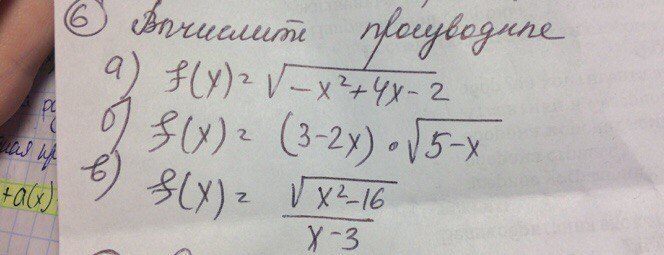 ⑥ Вычислите производные
а) f(x) = √(-x²+4x-2)
б) f(x) = (3-2x) • √(5-x)
в) f(x) = √(x²-16) / (x-3)
+a(x)